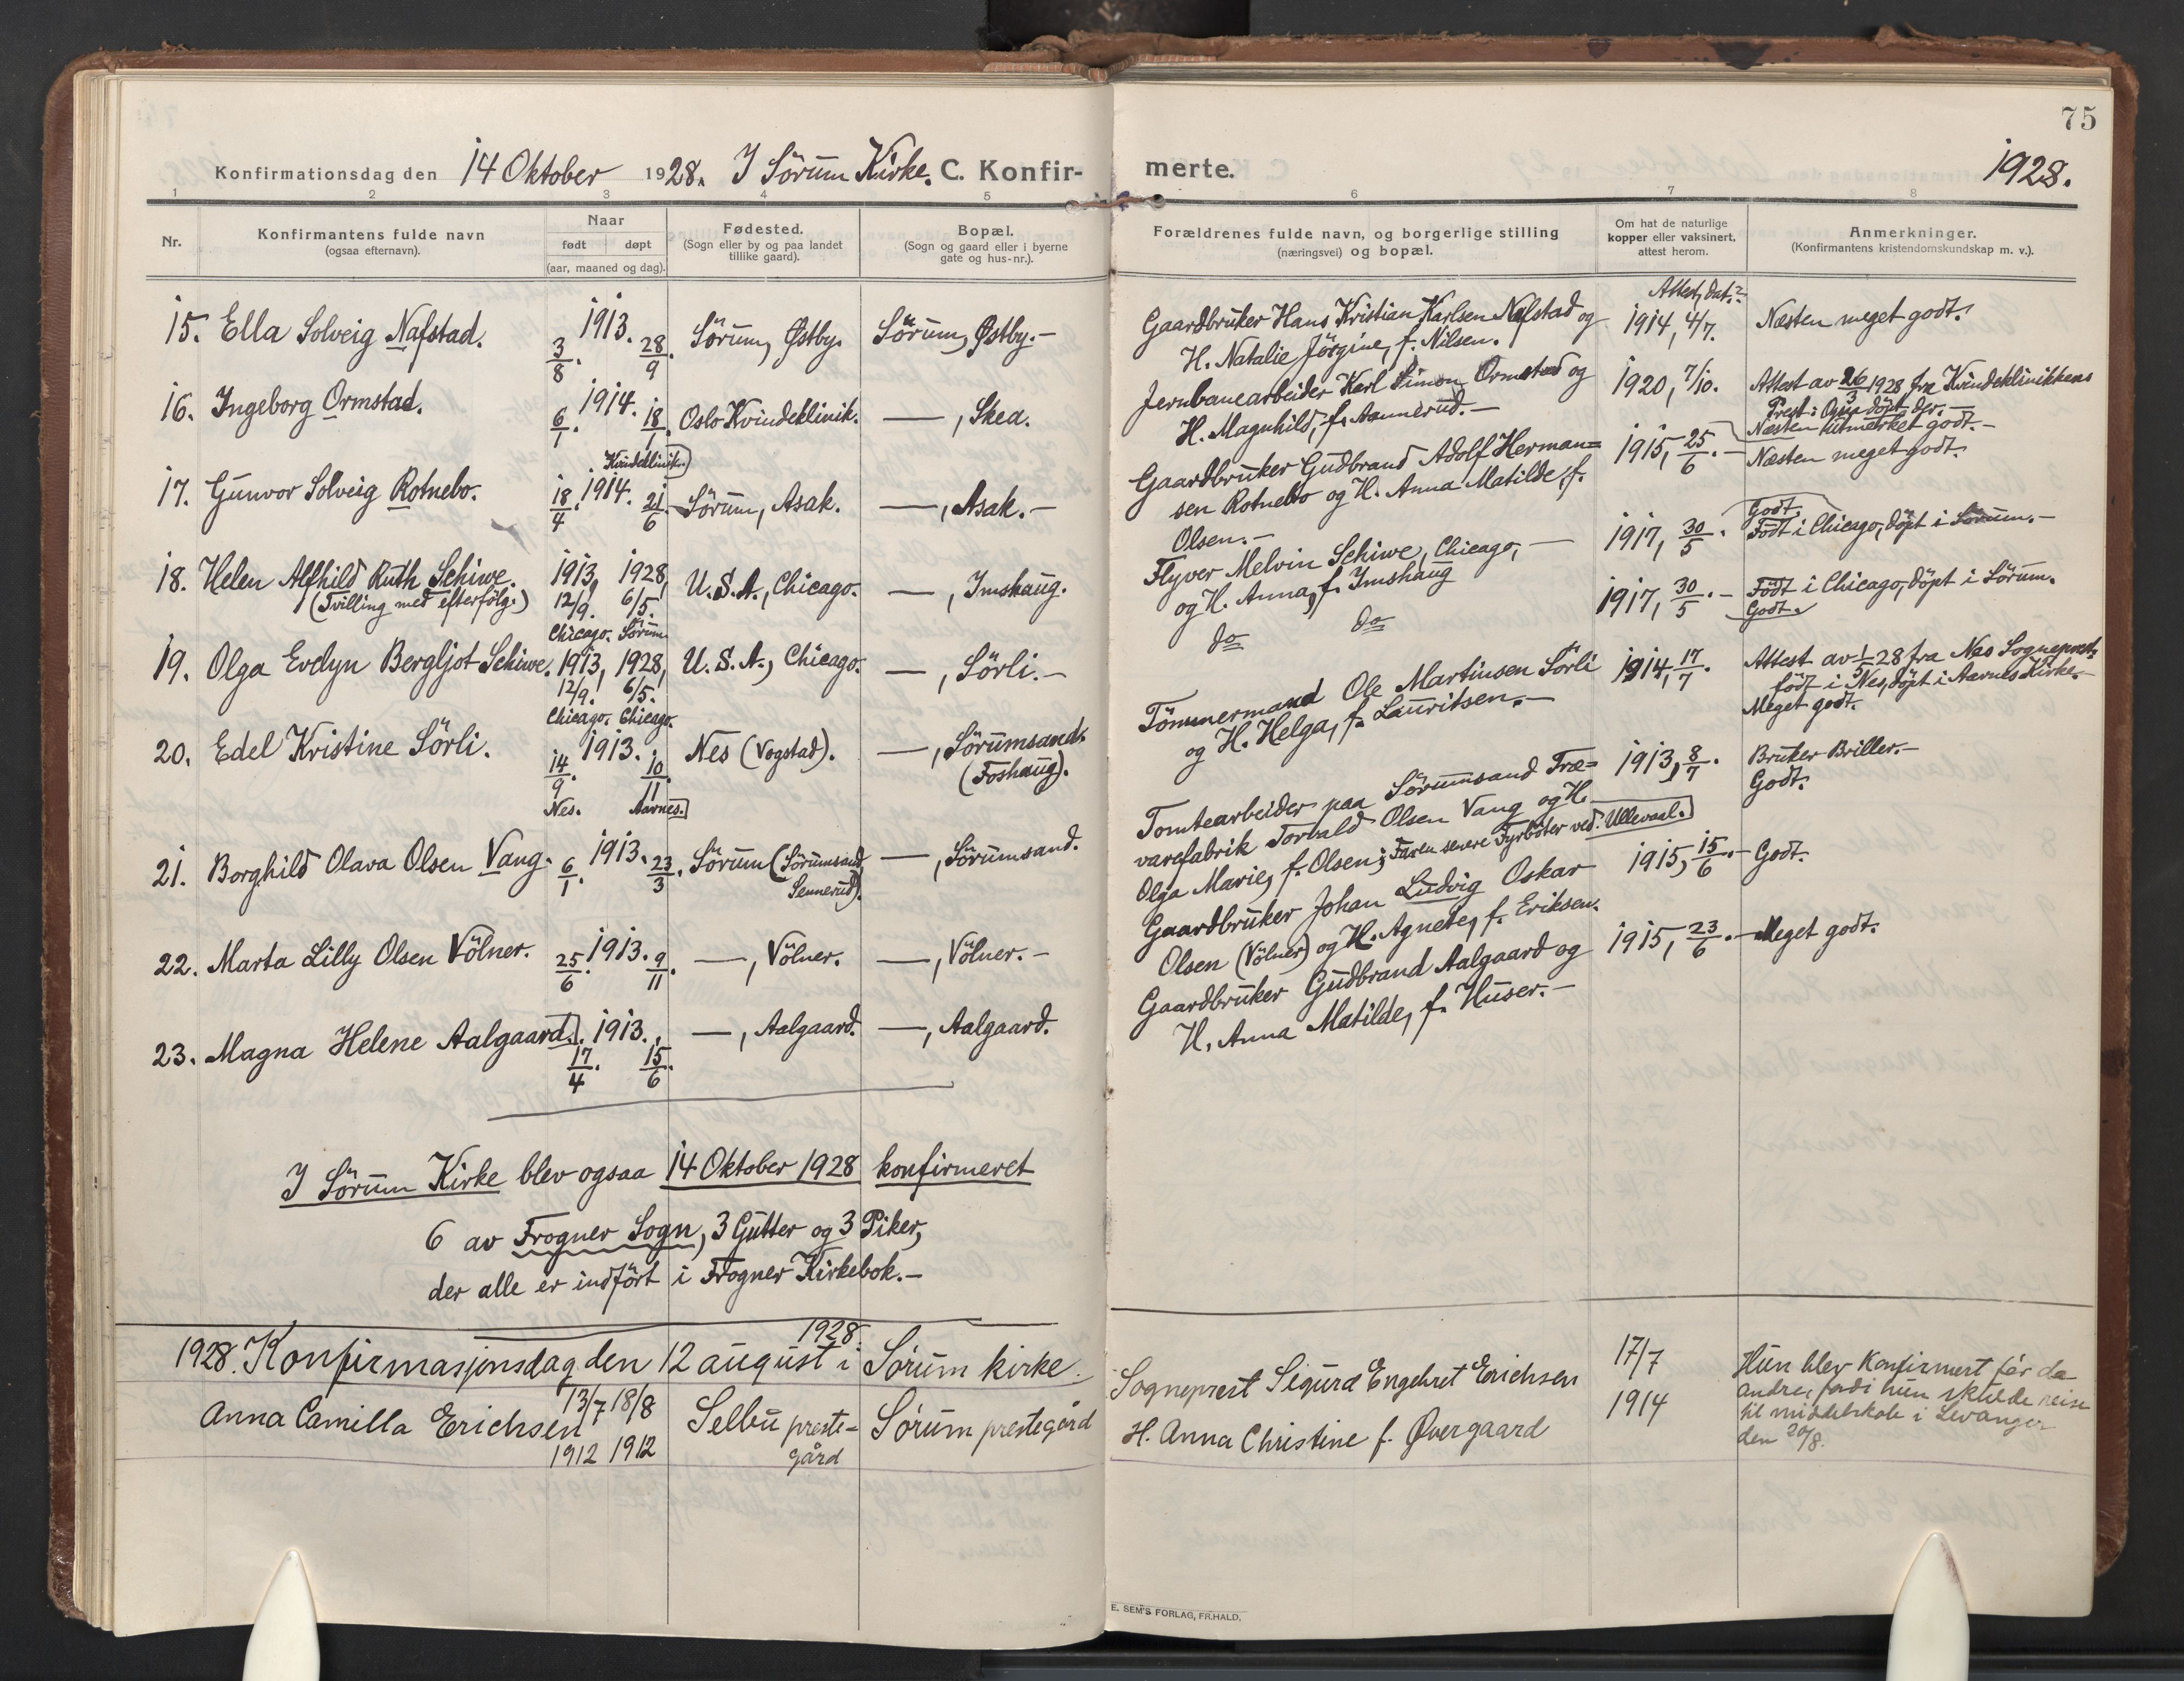 75
Konfirmationsdag den 14 Oktober 1928. I Sörum Kirke. C. Konfirmerte. 1928.
1 2 3 4 5 6 7 8
Nr.
Konfirmantens fulde navn
(ogsaa efternavn).
Naar
født døpt
(aar, maaned og dag).
Fødested.
(Sogn eller by og paa landet
tillike gaard).
Bopæl.
(Sogn og gaard eller i byerne
gate og hus-nr.).
Forældrenes fulde navn, og borgerlige stilling
(næringsvei) og bopæl.
Om hat de naturlige
kopper eller vaksinert,
attest herom.
Anmerkninger.
(Konfirmantens kristendomskundskap m. v.).
15. Ella Solveig Nafstad. 1913. 3/8. 28/9. Sörum, Østby. Sörum, Østby.-
Gaardbruker Hans Kristian Karlsen Nafstad og
H. Natalie Jörgine, f. Nilsen.
Attest, dat.
1914, 4/7. Næsten meget godt.
16. Ingeborg Ormstad. 1914. 6/1. 18/1. Oslo Kvindeklinik. —, Skea.
Kvindeklinik.
Jernbanearbeider Karl Simon Ormstad og
H. Magnhild, f. Aannerud.-
1920, 7/10. Attest av 26/3 1928 fra Kvindeklinikkens
Prest: Ogsa döpt der.-
Næsten utmerket godt.-
17. Gunvor Solveig Rotnebo. 18/4. 1914. 21/6. Sörum, Asak. —, Asak.-
Gaardbruker Gudbrand Adolf Herman=
sen Rotnebo og H. Anna Matilde, f.
Olsen.-
1915, 25/6.- Næsten meget godt.
18. Helen Alfhild Ruth Schiwe. 1913, 1928, U.S.A., Chicago. —, Imshaug.
(Tvilling med efterfölg.) 12/9. 6/5.
Chicago. Sörum
Flyver Melvin Schiwe, Chicago, —
og H. Anna, f. Imshaug
1917, 30/5. Godt.
Födt i Chicago, döpt i Sörum.-
19. Olga Evelyn Bergljot Schiwe. 1913, 1928, U.S.A., Chicago. —, Sörli.-
12/9. 6/5.
Chicago. Chicago.
do do
1917, 30/5.- Födt i Chicago, döpt i Sörum.
Godt.
20. Edel Kristine Sörli. 1913. 14/9. 10/11. Nes (Vogstad). —, Sörumsand.
(Foshaug).
Nes. Aarnes.
Tömmermand Ole Martinsen Sörli
og H. Helga, f. Lauritsen.-
1914, 17/7. Attest av 1/5 28 fra Nes Sogneprest:
födt i Nes, döpt i Aarnes Kirke.-
Meget godt.
21. Borghild Olava Olsen Vang. 6/1. 1913. 23/3. Sörum (Sörumsand, —, Sörumsand.
Sennerud).
Tomtearbeider paa Sörumsand Træ=
varefabrik Torvald Olsen Vang og H.
Olga Marie, f. Olsen; Faren senere Fyrböter ved Ullevaal.
1913, 8/7. Bruker Briller.-
Godt.
22. Marta Lilly Olsen Völner. 25/6. 1913. 9/11. —, Völner. —, Völner.-
Gaardbruker Johan Ludvig Oskar
Olsen (Völner) og H. Agnete, f. Eriksen.
1915, 15/6.- Godt.
23. Magna Helene Aalgaard. 1913. 17/4. 15/6. —, Aalgaard. —, Aalgaard.
Gaardbruker Gudbrand Aalgaard og
H. Anna Matilde, f. Huser.-
1915, 23/6.- Meget godt.
I Sörum Kirke blev ogsaa 14 Oktober 1928 konfirmeret
6 av Frogner Sogn, 3 Gutter og 3 Piker,
der alle er indfört i Frogner Kirkebok.-
1928
1928. Konfirmasjonsdag den 12 august i Sørum kirke.
Anna Camilla Erichsen 13/7 1912 18/8 1912 Selbu preste-
gård
Sørum prestegård
Sogneprest Sigurd Engebret Erichsen
H. Anna Christine f. Øvergaard
17/7
1914
Hun blev konfirmert før de
andre, fordi hun skulde reise
til middelskole i Levanger
den 20/8.
E. SEM'S FORLAG, FR.HALD.